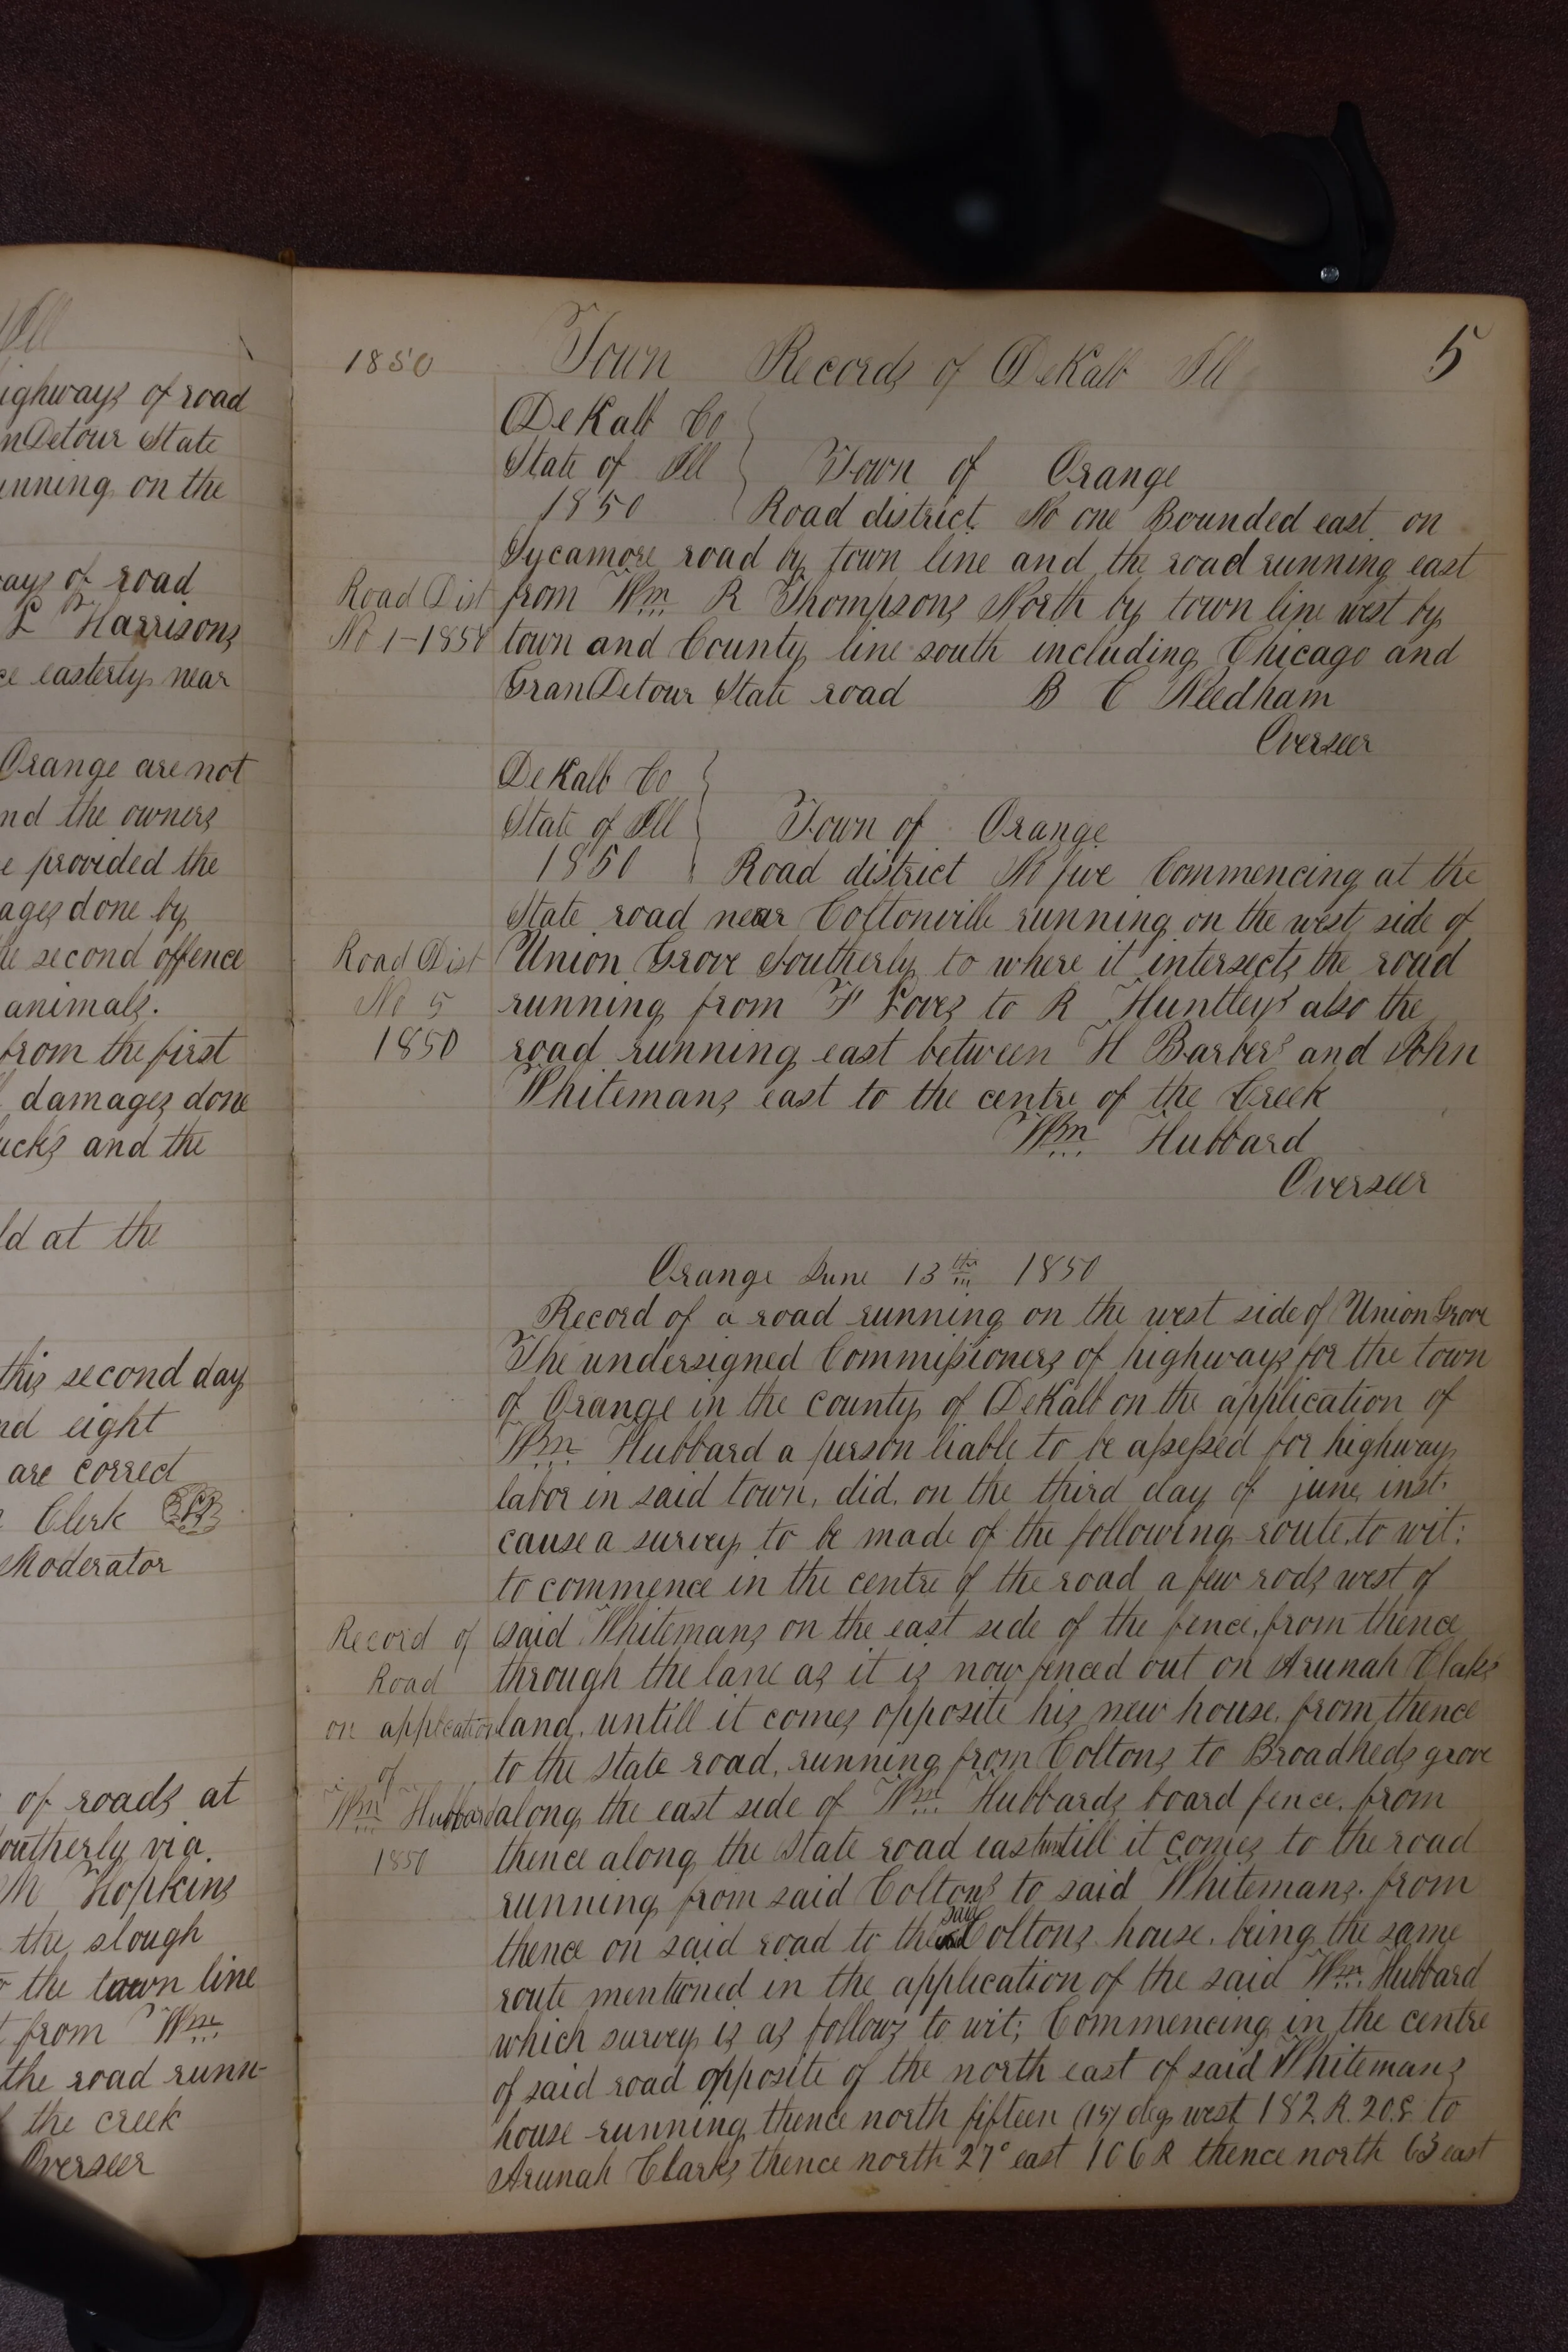 Ill
ighways of road
nDetour State
unning on the
ays of road
L Harrisons
ce easterly near
Orange are not
nd the owners
e provided the
ages done by
he second offence
animals.
from the first
damages done
ucks and the
ld at the
this second day
nd eight
are correct
Clerk
Moderator
of roads at
outherly via.
M Hopkins
the slough
o the town line
t from Wm
the road runn-
f the creek
Overseer
1850 Town Records of DeKalb Ill 5
DeKalb Co
State of Ill Town of Orange
1850 Road district No one Bounded east on
Sycamore road by town line and the road running east
Road Dist from Wm R Thompsons North by town line west by
No 1-1850 town and County line south including Chicago and
GranDetour State road B C Needham
Overseer
DeKalb Co
State of Ill Town of Orange
1850 Road district No five Commencing at the
State road near Coltonville running on the west side of
Road Dist Union Grove Southerly to where it intersects the road
No 5 running from F Loves to R Huntleys also the
1850 road running east between H Barbers and John
Whitemans east to the centre of the Creek
Wm Hubbard
Overseer
Orange June 13th 1850
Record of a road running on the west side of Union Grove
The undersigned Commissioners of highways for the town
of Orange in the county of DeKalb on the application of
Wm Hubbard a person liable to be assessed for highway
labor in said town, did, on the third day of june, inst.
cause a survey to be made of the following route, to wit:
to commence in the centre of the road a few rods west of
Record of said Whitemans on the east side of the fence, from thence
Road through the lane as it is now fenced out on Arunah Claks
on application land, untill it comes opposite his new house, from thence
of to the State road, running from Coltons to Broadheds grove
Wm Hubbard along the east side of Wm Hubbards board fence, from
1850 thence along the State road east untill it comes to the road
running from said Coltons to said Whitemans. from
thence on said road to the said Coltons house, being the same
route mentioned in the application of the said Wm. Hubbard
which survey is as follows to wit; Commencing in the centre
of said road opposite of the north east of said Whitemans
house running thence north fifteen (15) deg west 182 R. 20 S. to
Arunah Clarks thence north 27° east 106 R thence north 63 east